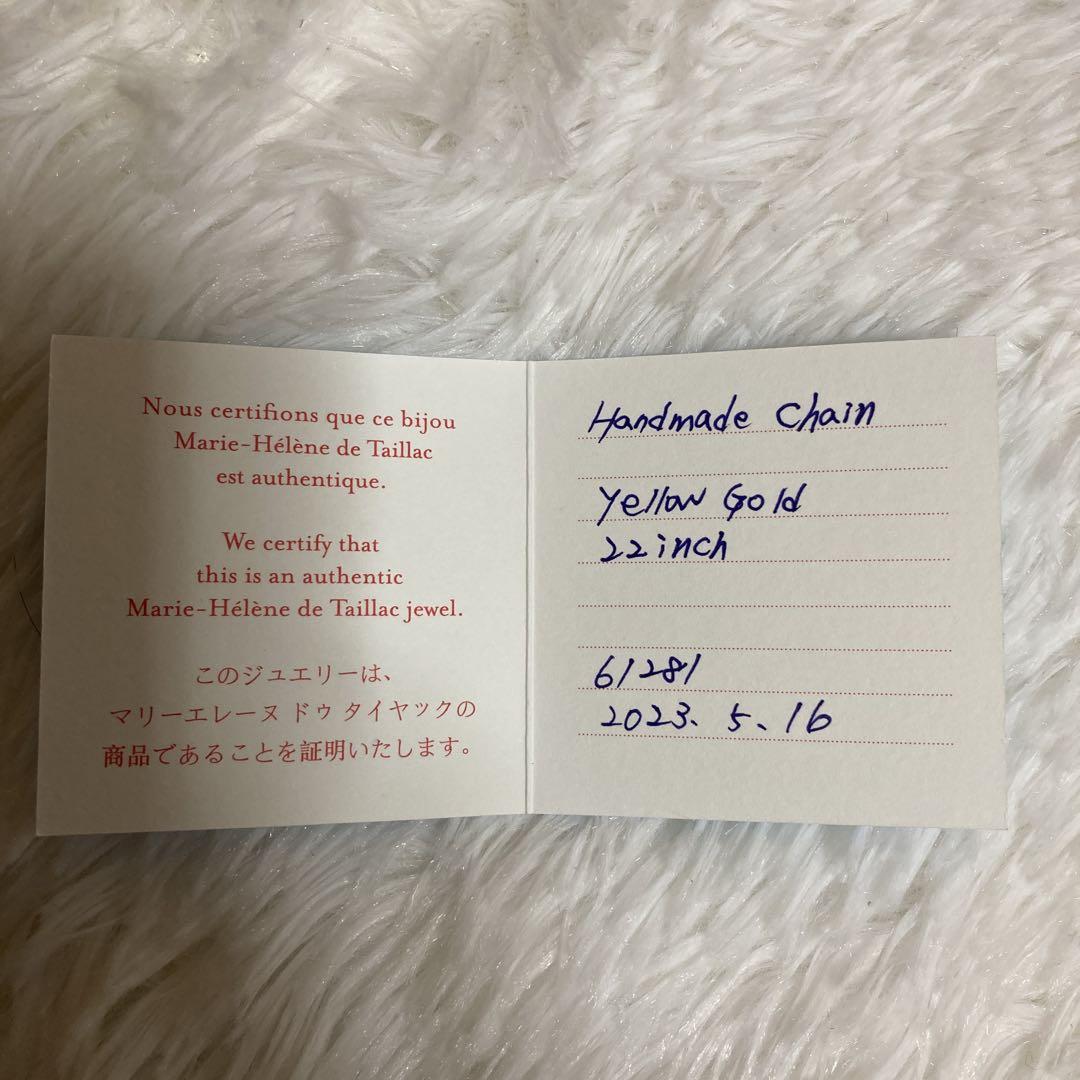 Nous certifions que ce bijou
Marie-Hélène de Taillac
est authentique.
We certify that
this is an authentic
Marie-Hélène de Taillac jewel.
このジュエリーは、
マリーエレーヌ ドゥ タイヤックの
商品であることを証明いたします。
Handmade Chain
Yellow Gold
22inch
61281
2023. 5. 16